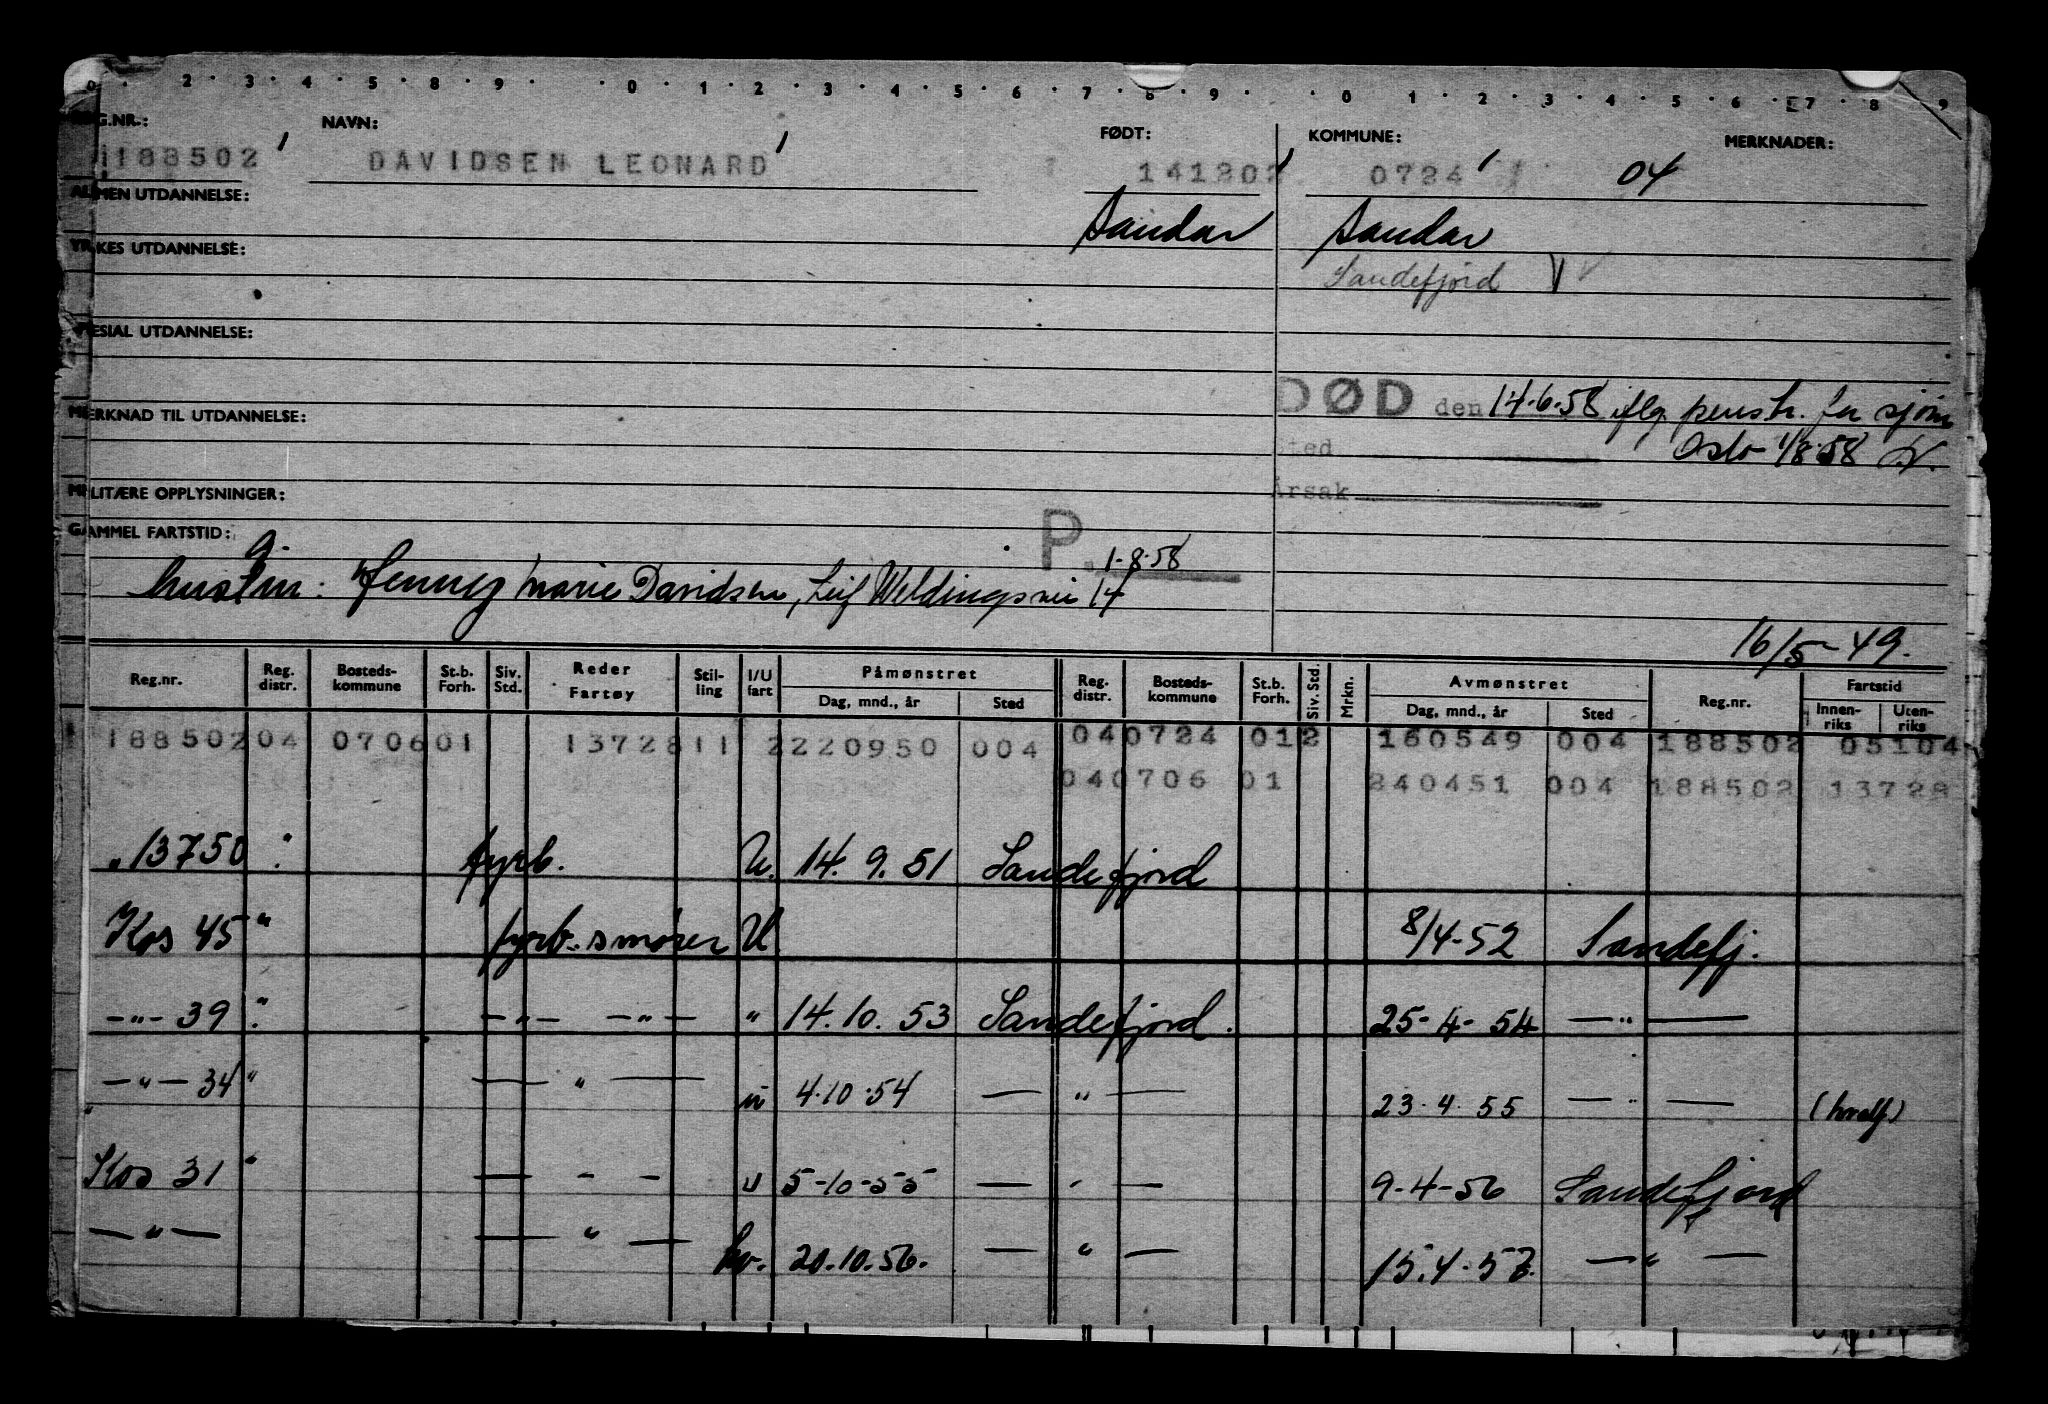 0 · 2 · 3 · 4 · 5 · 8 · 9 · 0 · 1 · 2 · 3 · 4 · 5 · 6 · 7 · 8 · 9 · 0 · 1 · 2 · 3 · 4 · 5 · 6 · 7 · 8 · 9
G.NR.: NAVN: FØDT: KOMMUNE: MERKNADER:
188502 DAVIDSEN LEONARD 141202 0724 04
MEN UTDANNELSE: Sandar Sandar
KES UTDANNELSE: Sandefjord
ESIAL UTDANNELSE:
DØD den 14.6.58 iflg penstr. for sjøm
MERKNAD TIL UTDANNELSE: Oslo 1/8.58
Sted
MILITÆRE OPPLYSNINGER: Årsak
GAMMEL FARTSTID: P 1-8-58
g.
hustru: Jenny Marie Davidsen, Leif Weldingsvei 14
16/5-49.
Reg.nr. Reg. distr. Bosteds-kommune St.b. Forh. Siv. Std. Reder Fartøy Stil-ling I/U fart Påmønstret Dag, mnd., år Sted Reg. distr. Bosteds-kommune St.b. Forh. Siv. Std. Mrkn. Avmønstret Dag, mnd., år Sted Reg.nr. Fartstid Innen-riks Uten-riks
188502 04 0706 01 13728 11 2 220950 004 04 0724 01 2 160549 004 188502 05104
04 0706 01 240451 004 188502 13728
" 13750 " fyrb. U. 14. 9. 51 Sandefjord
Kos 45 " fyrb. smører U 8/4-52 Sandefj.
—"— 39 " —"— —"— " 14.10. 53 Sandefjord. 25-4-54 —"—
—"— 34 " —"— u 4.10.54 —"— 23.4.55 —"— (hvalf)
Kos 31 " — - - u 5-10-55 — " — 9-4-56 Sandefjord
—"— —"— hv. 20.10.56. —"— 15.4.57. —"—